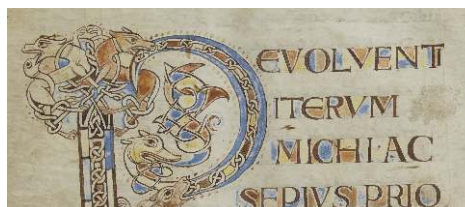 REVOLVENTI
ITERVM
MICHI·AC
SEPIVS PRIO